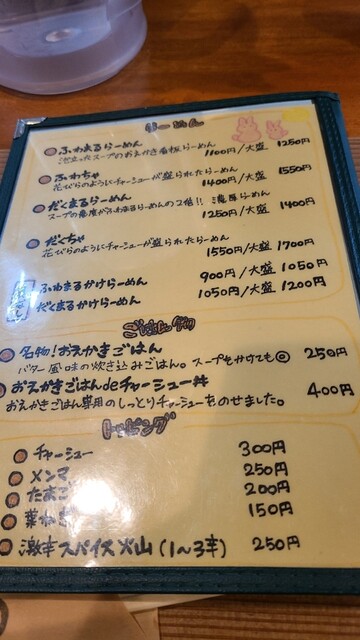 らーめん
ふわまるらーめん
泡立ったスープのおえかき看板らーめん
1100円/大盛 1250円
ふわちゃ
花びらのようにチャーシューが盛られたらーめん
1400円/大盛 1550円
だくまるらーめん
スープの濃度がふわまるらーめんの2倍!! 濃厚らーめん
1250円/大盛 1400円
だくちゃ
花びらのようにチャーシューが盛られたらーめん
1550円/大盛 1700円
ふわまるかけらーめん 900円/大盛 1050円
だくまるかけらーめん 1050円/大盛 1200円
ごはん
名物!おえかきごはん 250円
バター風味の炊き込みごはん。スープをかけても◎
おえかきごはんdeチャーシュー丼 400円
おえかきごはん専用のしっとりチャーシューをのせました。
トッピング
チャーシュー 300円
メンマ 250円
たまご 200円
葉ねぎ 150円
激辛スパイス火山(1~3辛) 250円